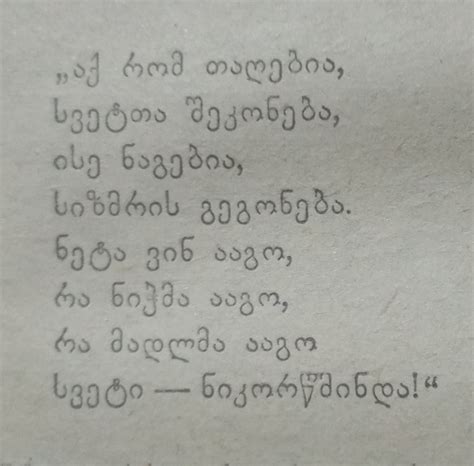 „აქ რომ თაღებია,
სვეტთა შეკონება,
ისე ნაგებია,
სიზმრის გეგონება.
ნეტა ვინ ააგო,
რა ნიჭმა ააგო,
რა მადლმა ააგო
სვეტი — ნიკორწმინდა!“